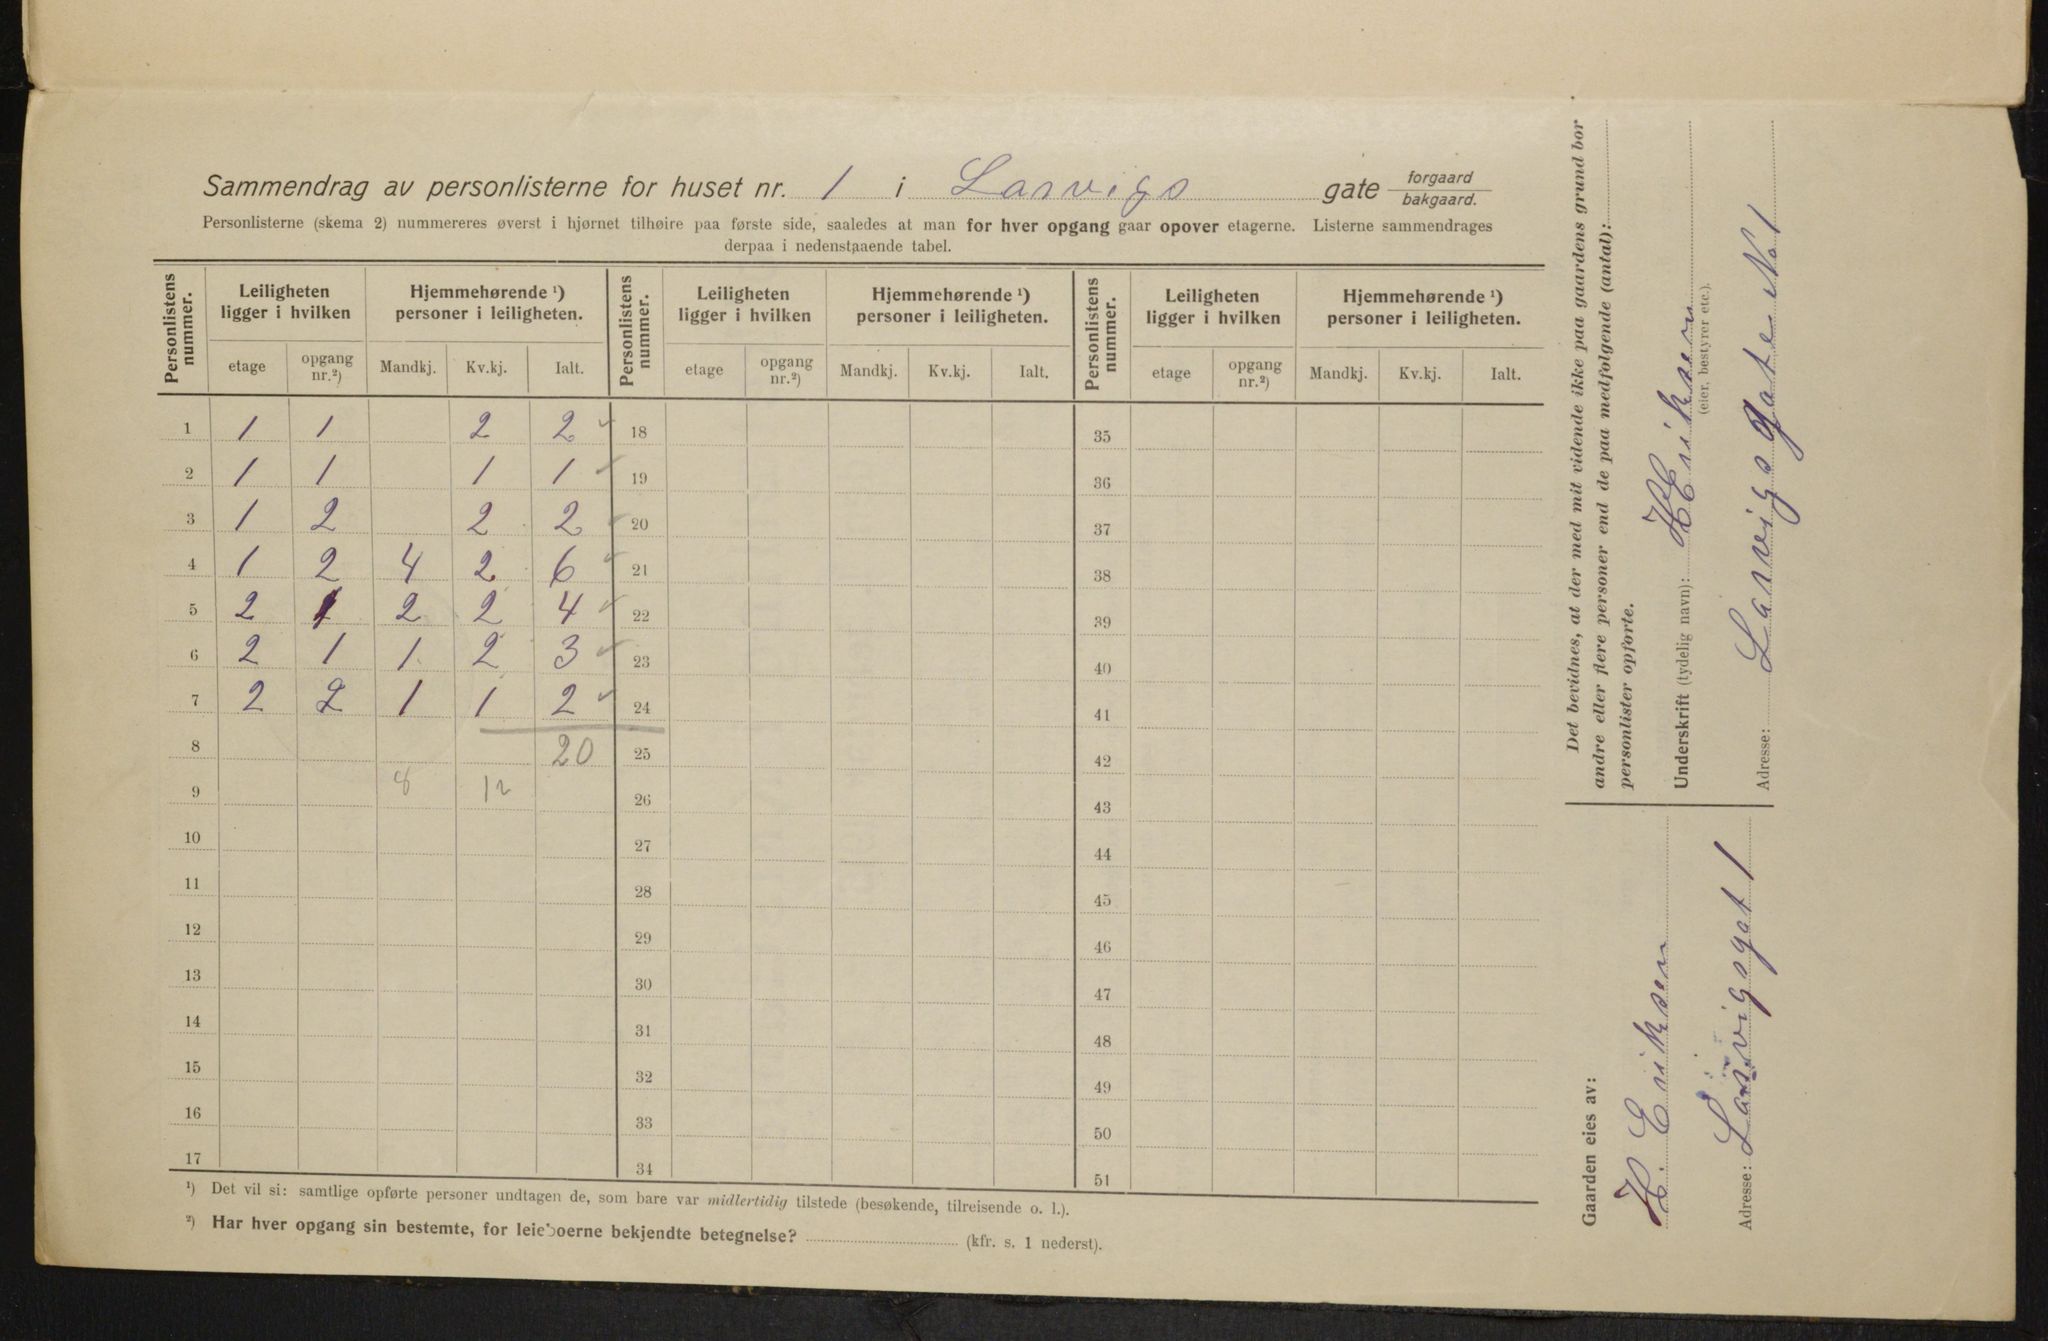 Sammendrag av personlisterne for huset nr. 1 i Larvigs gate forgaard bakgaard.
Personlisterne (skema 2) nummereres øverst i hjørnet tilhøire paa første side, saaledes at man for hver opgang gaar opover etagerne. Listerne sammendrages
derpaa i nedenstaaende tabel.
Personlistens nummer. Leiligheten ligger i hvilken Hjemmehørende ¹) personer i leiligheten. Personlistens nummer. Leiligheten ligger i hvilken Hjemmehørende ¹) personer i leiligheten. Personlistens nummer. Leiligheten ligger i hvilken Hjemmehørende ¹) personer i leiligheten.
etage opgang nr.²) Mandkj. Kv.kj. Ialt. etage opgang nr.²) Mandkj. Kv.kj. Ialt. etage opgang nr.²) Mandkj. Kv.kj. Ialt.
1 1 1 2 2 ✓ 18 35
2 1 1 1 1 ✓ 19 36
3 1 2 2 2 ✓ 20 37
4 1 2 4 2 6 ✓ 21 38
5 2 1 2 2 4 ✓ 22 39
6 2 1 1 2 3 ✓ 23 40
7 2 2 1 1 2 ✓ 24 41
8 20 25 42
9 8 12 26 43
10 27 44
11 28 45
12 29 46
13 30 47
14 31 48
15 32 49
16 33 50
17 34 51
¹) Det vil si: samtlige opførte personer undtagen de, som bare var midlertidig tilstede (besøkende, tilreisende o. l.).
²) Har hver opgang sin bestemte, for leieboerne bekjendte betegnelse? (kfr. s. 1 nederst).
Det bevidnes, at der med mit vidende ikke paa gaardens grund bor
andre eller flere personer end de paa medfølgende (antal):
personlister opførte.
Underskrift (tydelig navn): H Eriksen
(eier, bestyrer etc.).
Adresse: Larvigs gate No 1
Gaarden eies av:
H. Eriksen
Adresse: Larvigsgat 1